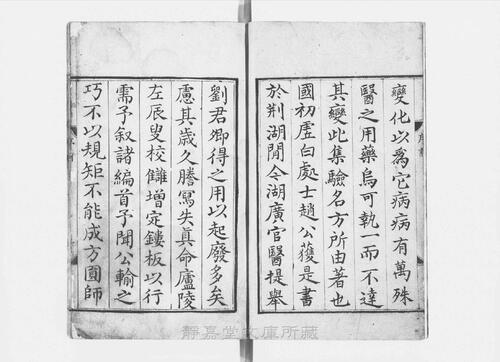 變化以爲它病病有萬殊
醫之用藥烏可執一而不達
其變此集驗名方所由著也
國初虛白處士趙公獲是書
於荆湖閒今湖廣官醫提舉
劉君卿得之用以起廢多矣
慮其歳久謄寫失眞命廬陵
左辰叟校讎增定鏤板以行
需予叙諸編首予聞公輸之
巧不以規矩不能成方圓師
靜嘉堂文庫所藏